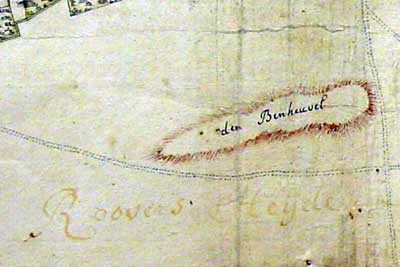 den Benheuvel
Roovers Heyde